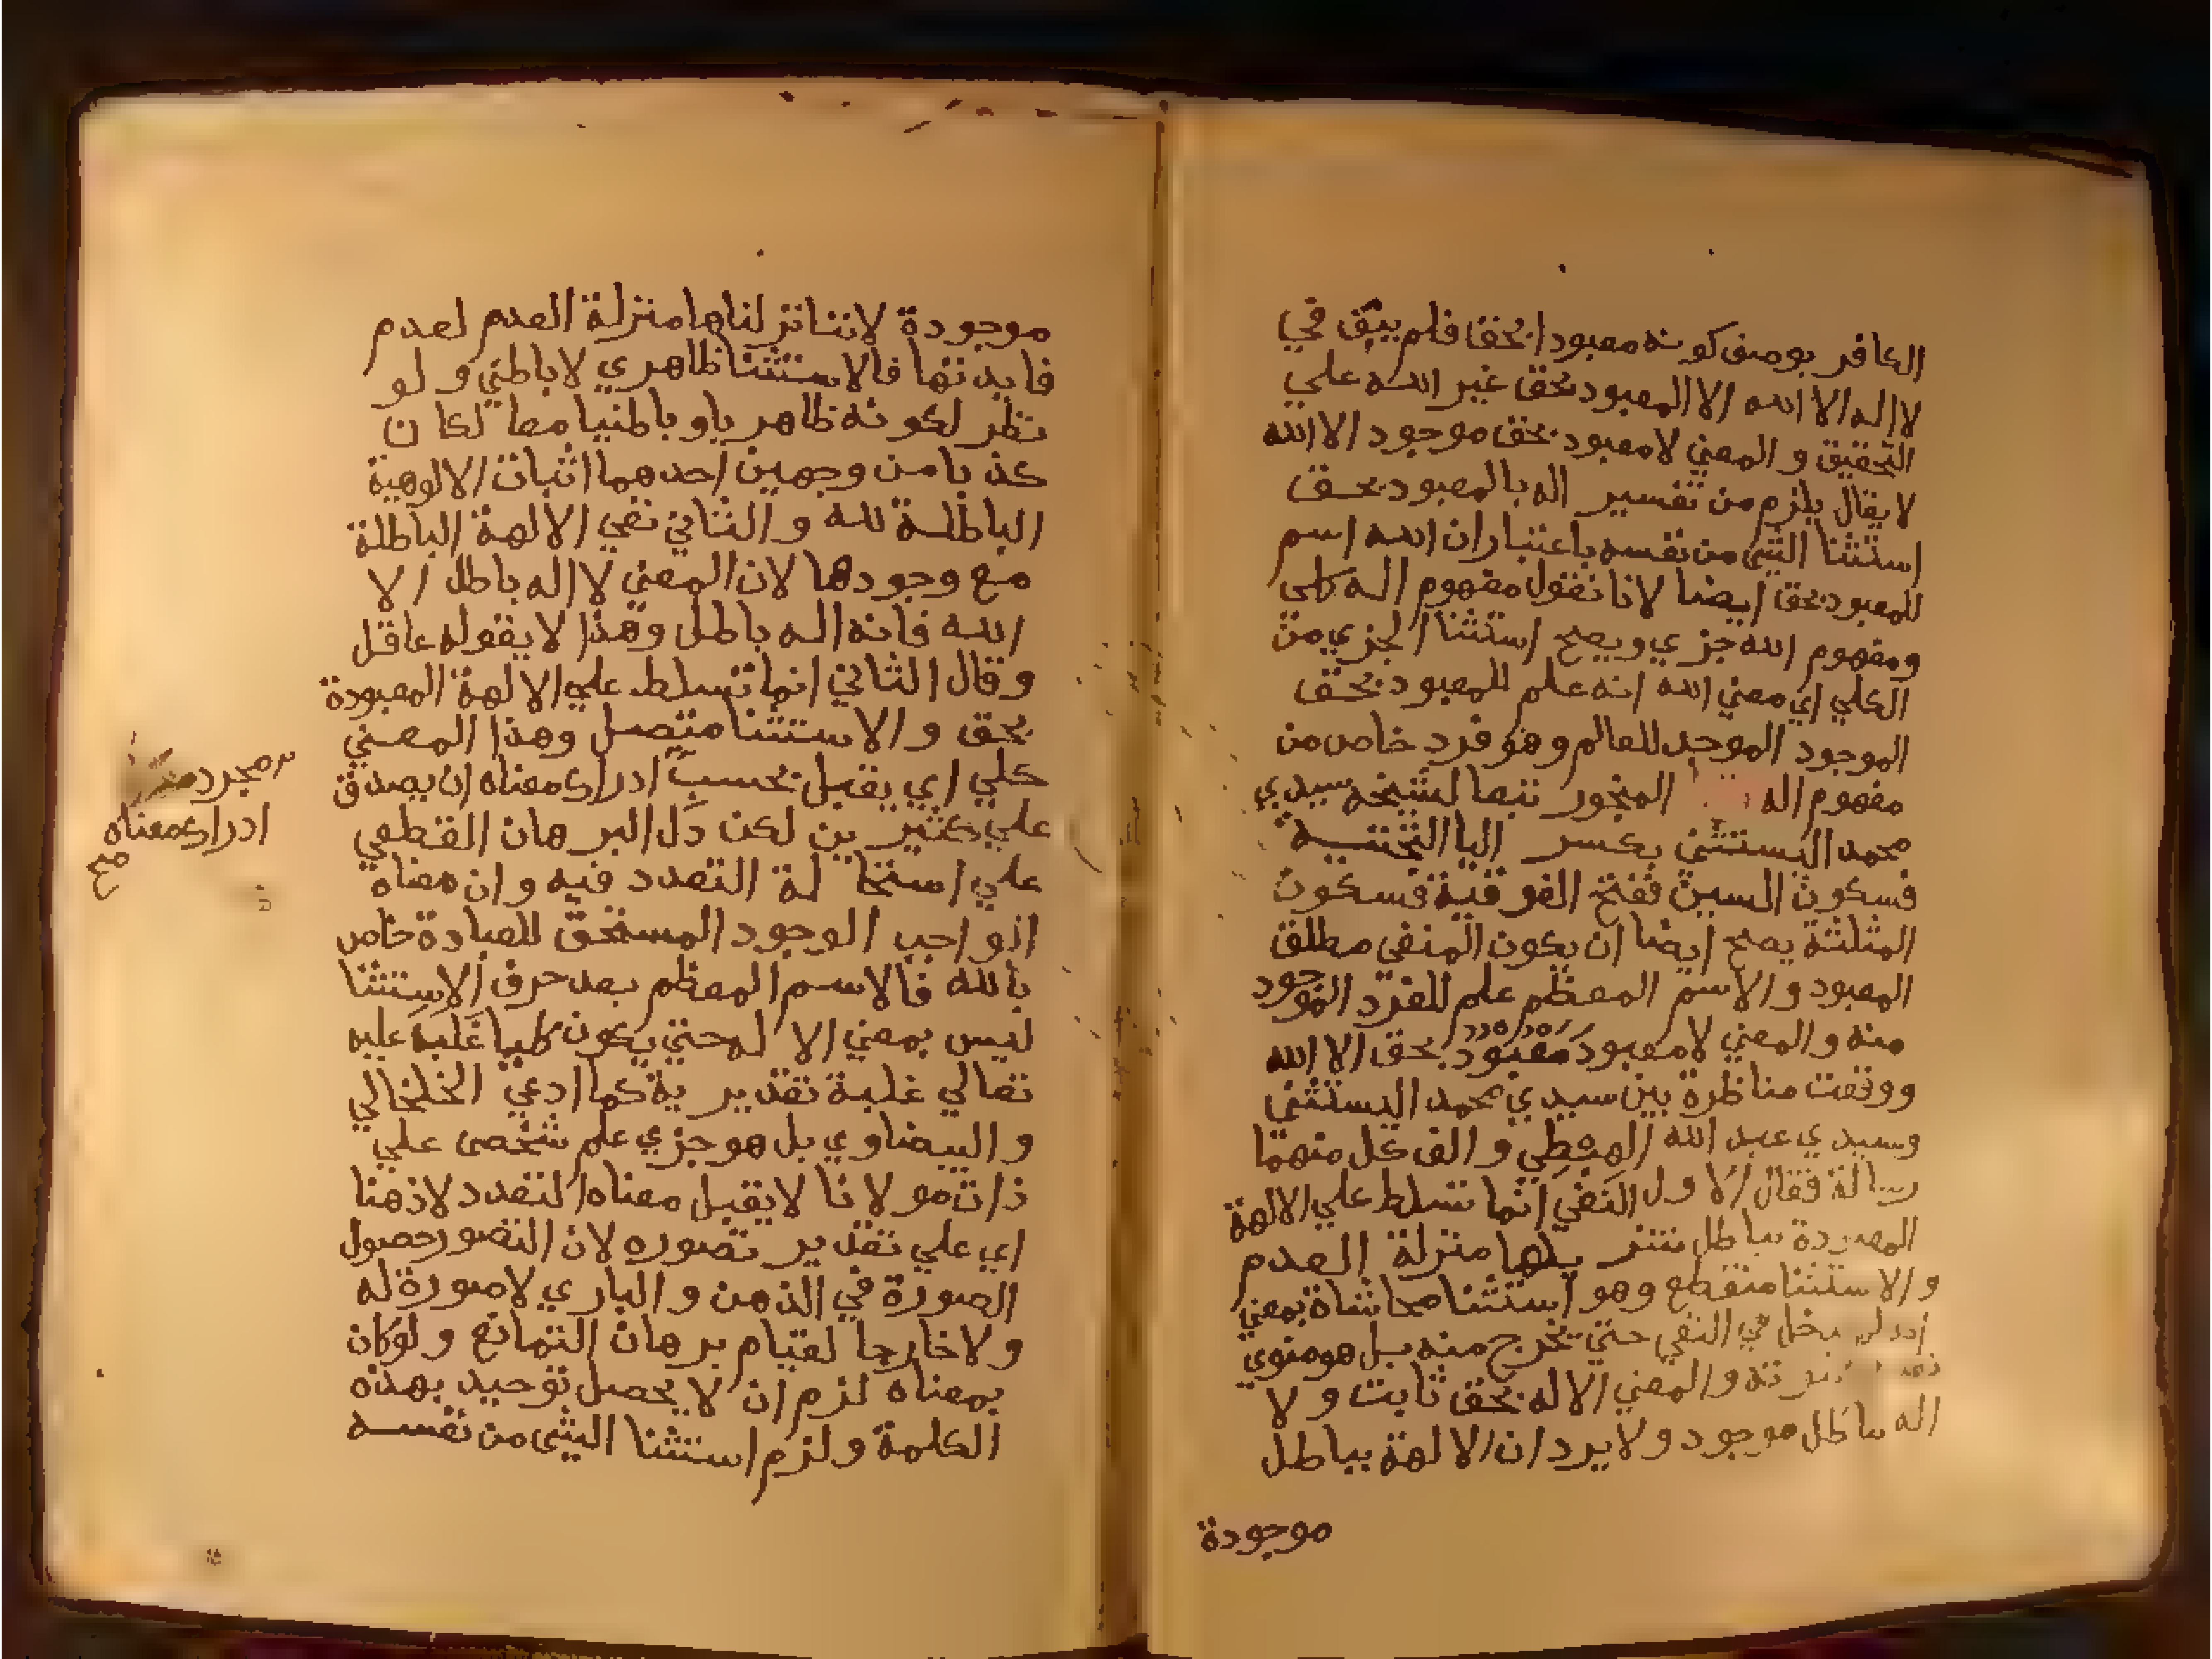 الكافر بوصف كونه معبودا بحق فلم يبق في
لا اله الا الله الا المعبود بحق غير الله علي
التحقيق و المعني لا معبود بحق موجود الا الله
لا يقال يلزم من تفسير اله بالمعبود بحق
استثنا الشي من نفسه باعتبار ان الله اسم
للمعبود بحق ايضا لانا نقول مفهوم اله كلي
ومفهوم الله جزي ويصح استثنا الجزي من
الكلي اي معني الله انه علم للمعبود بحق
الموجود الموجد للعالم وهو فرد خاص من
مفهوم اله المنجور تبعا لشيخه سيدي
محمد اليستثني بكسر اليا التحتية
فسكون السين ففتح الفوقية فسكون
المثلثة يصح ايضا ان يكون المنفي مطلق
المعبود و الاسم المعظم علم للفرد الموجود
منه و المعني لا معبود مَعْبُودٌ بحق الا الله
ووقعت مناظرة بين سيدي محمد اليستثني
وسيدي عبد الله الهبطي و الف كل منهما
رسالة فقال الاول النفي انما تسلط علي الالهة
المعبودة بباطل تنزيلها منزلة العدم
و الاستثنا منقطع وهو استثنا محاشاة بمعني
يدخل في النفي حتي يخرج منه بل هو منوي
و المعني الا له بحق ثابت و لا
اله باطل موجود و لا يرد ان الالهة بباطل
موجودة
موجودة لاننا نزلناها منزلة العدم لعدم
فايدتها فالاستثنا ظاهري لا باطني و لو
نظر لكونه ظاهريا و باطنيا معا لكان
كذبا من وجهين احدهما اثبات الالوهية
الباطلة لله و الثاني نفي الالهة الباطلة
مع وجودها لان المعني لا اله باطل الا
الله فانه اله باطل وهذا لا يقوله عاقل
وقال الثاني انما تسلط علي الالهة المعبودة
بحق و الاستثنا متصل وهذا المعني
كلي اي يقبل بحسب ادراك معناه ان يصدق
علي كثيرين لكن دل البرهان القطعي
علي استحالة التعدد فيه و ان معناه
الواجب الوجود المستحق للعبادة خاص
بالله فالاسم المعظم بعد حرف الاستثنا
ليس بمعني الاله حتي يكون كليا غلب عليه
تعالي غلبة تقديرية كما ادعي الخلخالي
و البيضاوي بل هو جزي علم شخصي علي
ذات مولانا لا يقبل معناه التعدد لا ذهنا
اي علي تقدير تصوره لان التصور حصول
الصورة في الذهن و الباري لا صورة له
و لا خارجا لقيام برهان التمانع و لو كان
بمعناه لزم ان لا يحصل توحيد بهذه
الكلمة و لزم استثنا الشي من نفسه
مجرد
ادراك معناه
صح